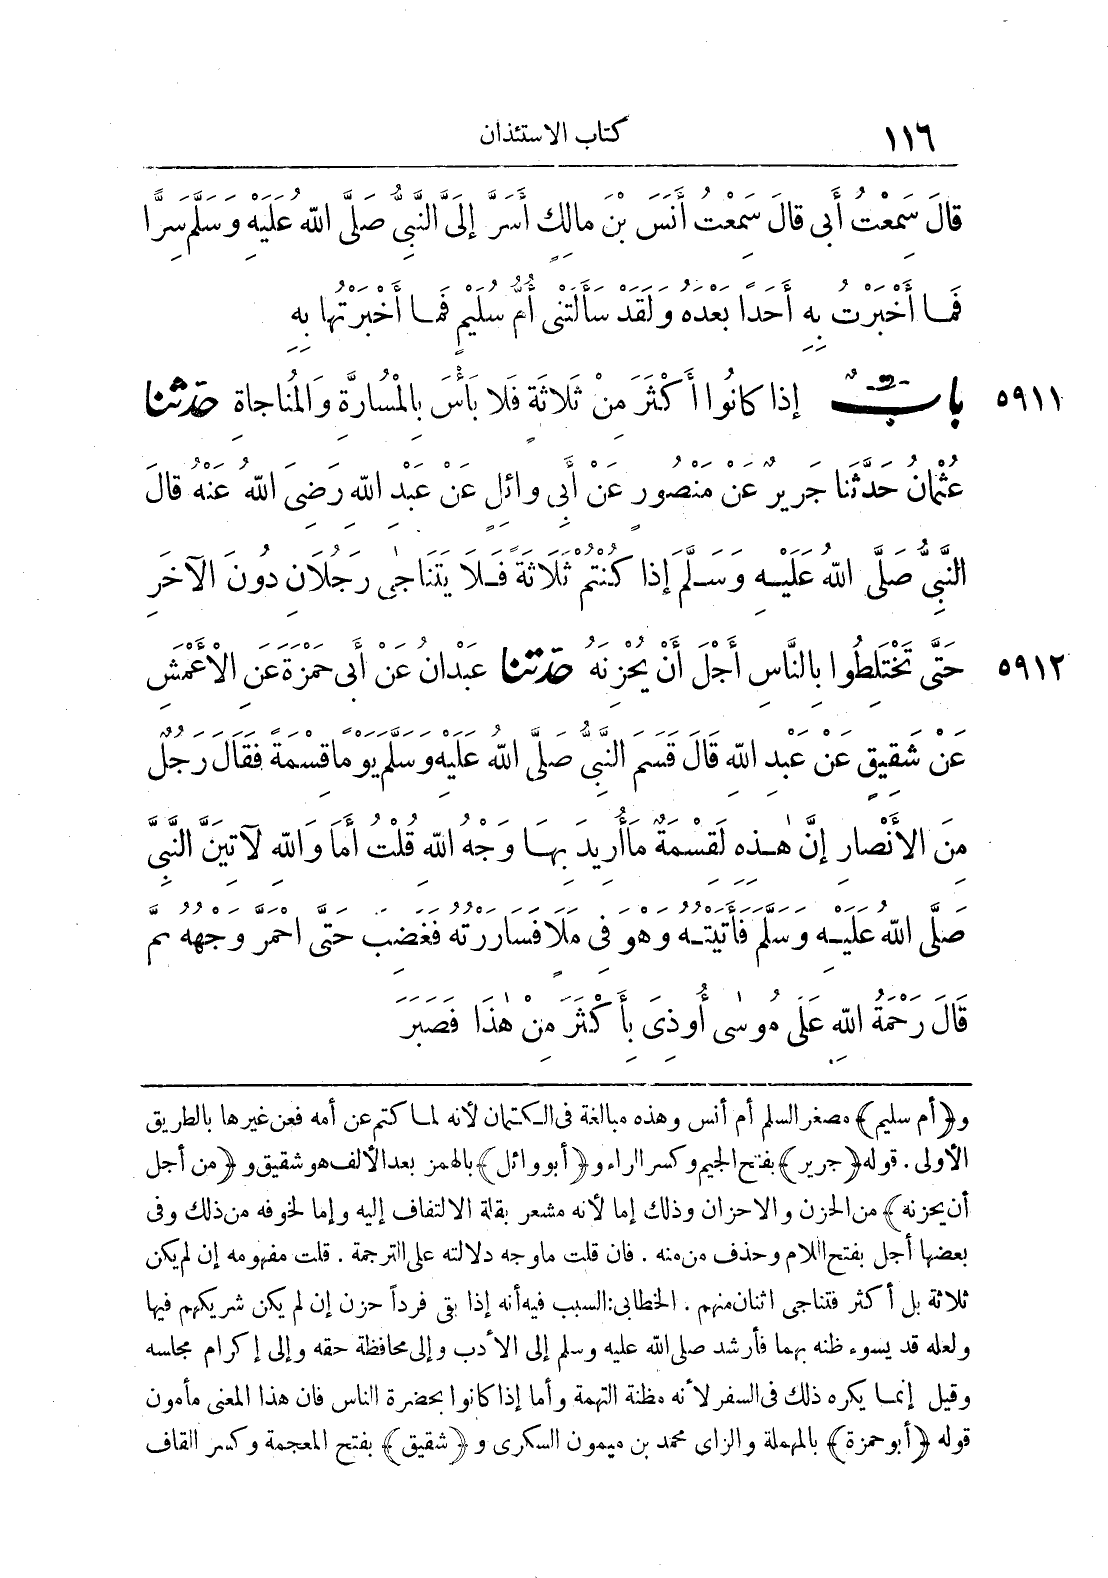 ١١٦ كتاب الاستئذان
قَالَ سَمِعْتُ أَبِى قالَ سَمِعْتُ أَنَسَ بْنَ مالِكٍ أَسَرَّ إِلَىَّ النَّبِىُّ صَلَّى اللهُ عَلَيْهِ وَسَلَّمَ سِرًّا
فَمَا أَخْبَرْتُ بِهِ أَحَدًا بَعْدَهُ وَلَقَدْ سَأَلَتْنِى أُمُّ سُلَيْمٍ فَمَا أَخْبَرْتُهَا بِهِ
٥٩١١ بابٌ إِذا كانُوا أَكْثَرَ مِنْ ثَلاثَةٍ فَلا بَأْسَ بِالْمُسارَّةِ وَالمُناجاةِ حَدَّثَنَا
عُثْمَانُ حَدَّثَنا جَرِيرٌ عَنْ مَنْصُورٍ عَنْ أَبِى وائِلٍ عَنْ عَبْدِ اللهِ رَضِىَ اللهُ عَنْهُ قالَ
النَّبِىُّ صَلَّى اللهُ عَلَيْهِ وَسَلَّمَ إِذا كُنْتُمْ ثَلَاثَةً فَلَا يَتَناجَى رَجُلَانِ دُونَ الآخَرِ
حَتَّى تَخْتَلِطُوا بِالنَّاسِ أَجْلَ أَنْ يُحْزِنَهُ حَدَّثَنَا عَبْدانُ عَنْ أَبِى حَمْزَةَ عَنِ الْأَعْمَشِ ٥٩١٢
عَنْ شَقِيقٍ عَنْ عَبْدِ اللهِ قَالَ قَسَمَ النَّبِىُّ صَلَّى اللهُ عَلَيْهِ وَسَلَّمَ يَوْمًا قِسْمَةً فَقَالَ رَجُلٌ
مِنَ الأَنْصارِ إِنَّ هٰذِهِ لَقِسْمَةٌ مَا أُرِيدَ بِهَا وَجْهُ اللهِ قُلْتُ أَمَا وَاللهِ لَآتِيَنَّ النَّبِىَّ
صَلَّى اللهُ عَلَيْهِ وَسَلَّمَ فَأَتَيْتُهُ وَهْوَ فِى مَلَإٍ فَسَارَرْتُهُ فَغَضِبَ حَتَّى احْمَرَّ وَجْهُهُ ثُمَّ
قَالَ رَحْمَةُ اللهِ عَلَى مُوسٰى أُوذِىَ بِأَكْثَرَ مِنْ هٰذَا فَصَبَرَ
و﴿أم سليم﴾ مصغر السلم أم أنس وهذه مبالغة فى الكتمان لأنه لما كتم عن أمه فعن غيرها بالطريق
الأولى . قوله ﴿جرير﴾ بفتح الجيم وكسر الراء و﴿أبو وائل﴾ بالهمز بعد الألف هو شقيق و﴿من أجل
أن يحزنه﴾ من الحزن والاحزان وذلك إما لأنه مشعر بقلة الالتفاف إليه وإما لخوفه من ذلك وفى
بعضها أجل بفتح اللام وحذف من منه . فان قلت ما وجه دلالته على الترجمة . قلت مفهومه إن لم يكن
ثلاثة بل أكثر فتناجى اثنان منهم . الخطابى: السبب فيه أنه إذا بقى فرداً حزن إن لم يكن شريكهم فيها
ولعله قد يسوء ظنه بهما فأرشد صلى الله عليه وسلم إلى الأدب وإلى محافظة حقه وإلى إكرام مجالسه
وقيل إنما يكره ذلك فى السفر لأنه مظنة التهمة وأما إذا كانوا بحضرة الناس فان هذا المعنى مأمون
قوله ﴿أبو حمزة﴾ بالمهملة والزاي محمد بن ميمون السكرى و ﴿شقيق﴾ بفتح المعجمة وكسر القاف